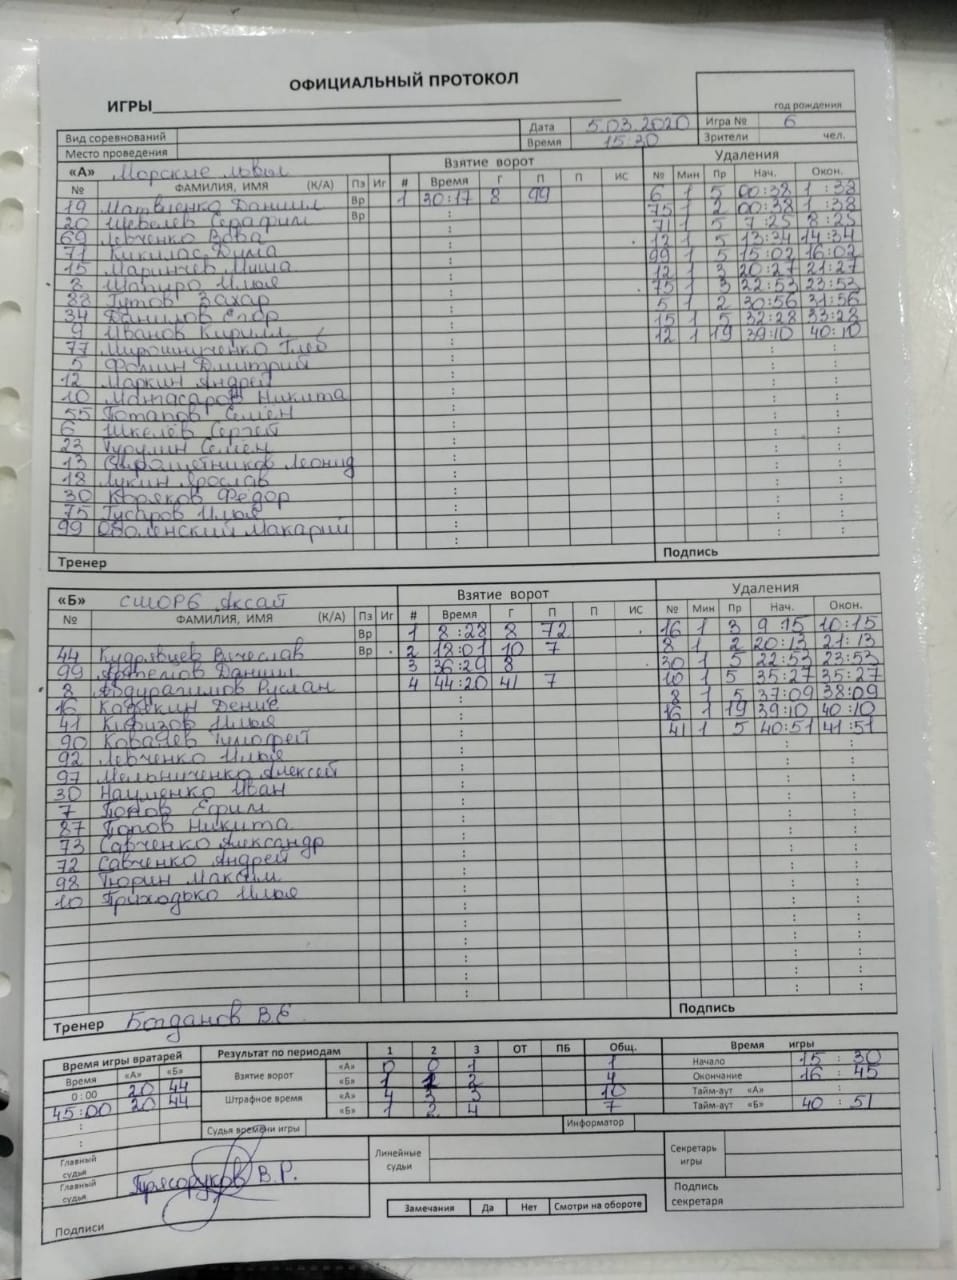 ОФИЦИАЛЬНЫЙ ПРОТОКОЛ
ИГРЫ
год рождения
Вид соревнований Дата 5.03.2020 Игра № 6
Место проведения Время 15:30 Зрители чел.
«А» Морские львы Взятие ворот Удаления
№ ФАМИЛИЯ, ИМЯ (К/А) Пз Иг # Время Г П П ИС № Мин Пр Нач. Окон.
19 Матвиенко Даниил Вр 1 30:17 8 99 6 1 5 00:38 1:38
20 Шевелёв Серафим Вр 75 1 2 00:38 1:38
69 Левченко Вова 71 1 5 7:25 8:25
71 Кикилас Дима 12 1 5 13:34 14:34
15 Маринчев Миша 99 1 5 15:02 16:02
8 Шапиро Илья 12 1 3 20:27 21:27
88 Гутов Захар 75 1 3 22:53 23:53
34 Данилов Егор 5 1 2 30:56 31:56
9 Иванов Кирилл 15 1 5 32:28 33:28
77 Мирошниченко Глеб 12 1 19 39:10 40:10
5 Фомин Дмитрий
12 Маркин Андрей
10 Никита
55 Потапов Семён
6 Шкелёв Сергей
23 Турулин Семён
13 Леонид
18 Лукин Ярослав
30 Коряков Фёдор
75 Гусаров Илья
99 Оболенский Макарий
Тренер Подпись
«Б» СШОР6 Аксай Взятие ворот Удаления
№ ФАМИЛИЯ, ИМЯ (К/А) Пз Иг # Время Г П П ИС № Мин Пр Нач. Окон.
Вр 1 8:28 8 72 16 1 3 9:15 10:15
44 Кудрявцев Вячеслав Вр 2 18:01 10 7 8 1 2 20:13 21:13
99 Артемов Даниил 3 36:29 8 30 1 5 22:53 23:53
8 Абдурагимов Руслан 4 44:20 41 7 10 1 5 35:27 35:27
16 Денис 8 1 5 37:09 38:09
41 Илья 16 1 19 39:10 40:10
90 Ковалёв Тимофей 41 1 5 40:51 41:51
92 Левченко Илья
97 Мельниченко Алексей
30 Науменко Иван
7 Попов Ефим
87 Попов Никита
73 Савченко Александр
72 Савченко Андрей
98 Тюрин Максим
10 Приходько Илья
Тренер Богданов В.Е. Подпись
Время игры вратарей Результат по периодам 1 2 3 ОТ ПБ Общ. Время игры
Время «А» «Б» Взятие ворот «А» 0 0 1 1 Начало 15:30
0:00 20 44 «Б» 1 1 2 4 Окончание 16:45
45:00 20 44 Штрафное время «А» 4 3 3 10 Тайм-аут «А» :
: «Б» 1 2 4 7 Тайм-аут «Б» 40:51
: Судья времени игры Информатор
Главный судья Линейные судьи Секретарь игры
Главный судья В.Р.
Подписи Подпись секретаря
Замечания Да Нет Смотри на обороте